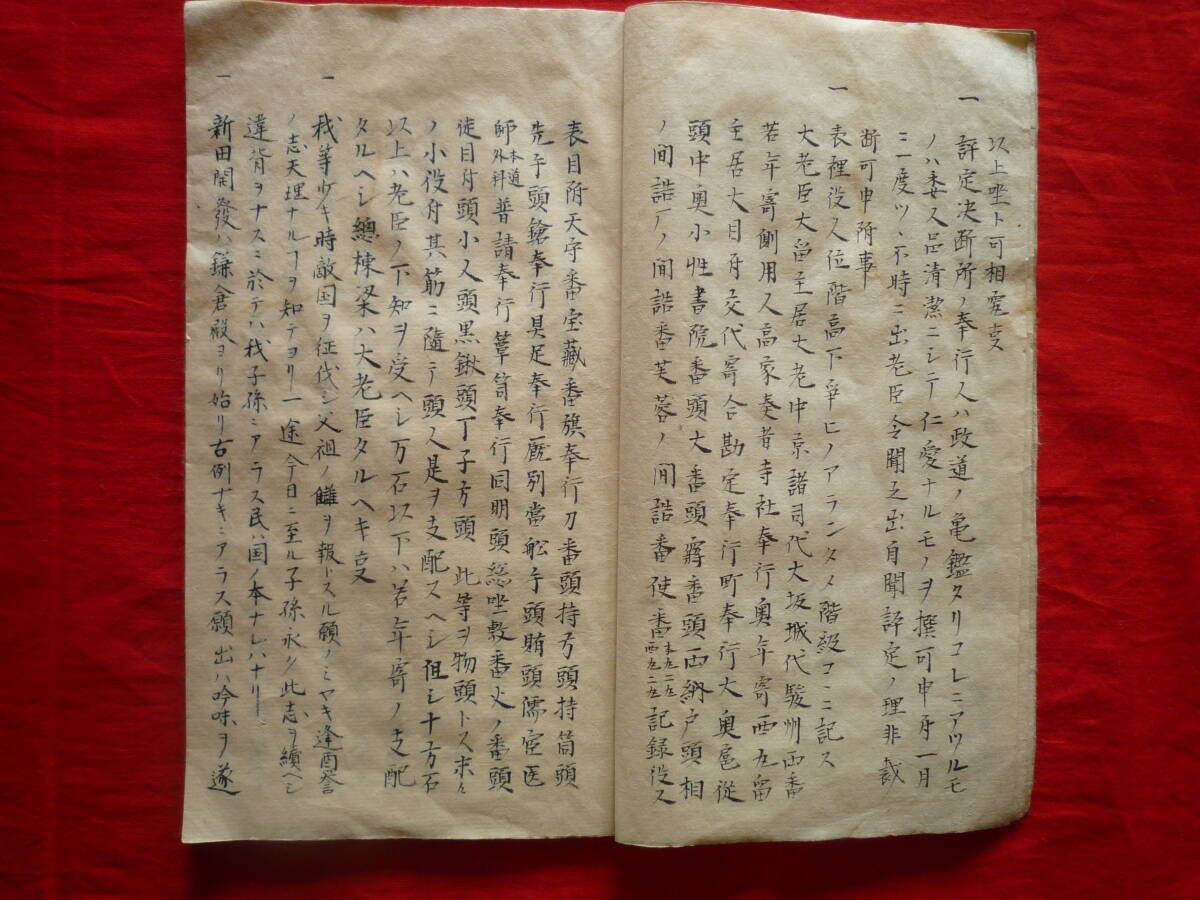 以上坐ト可相定叓
一 評定決断所ノ奉行人ハ政道ノ亀鑑タリコレニアツルモ
ノハ委ク人品清潔ニシテ仁愛ナルモノヲ撰可申付一月
ニ一度ツヽ不時ニ出老臣令聞之出自聞評定ノ理非裁
断可申付事
一 表裡役人位階高下爭ヒノアランタメ階級コヽニ記ス
大老臣大留主居大老中京諸司代大坂城代駿州西番
若年寄側用人高家奏者寺社奉行奥年寄西丸留
主居大目付交代寄合勘定奉行町奉行大奥扈従
頭中奥小性書院番頭大番頭寄番頭西納戸頭相
ノ間詰厂ノ間詰番芙蓉ノ間詰番使番本丸二丸西丸二丸記録役人
表目附天守番宝藏番旗奉行刀番頭持弓頭持筒頭
先手頭鎗奉行具足奉行厩別當舩手頭賄頭儒官医
師本道外科普請奉行簟笥奉行同明頭惣坐敷番火ノ番頭
徒目付頭小人頭黒鍬頭丁子方頭 此等ヲ物頭トス末々
ノ小役付其筋ニ隨テ頭人是ヲ支配スヘシ但シ十万石
以上ハ老臣ノ下知ヲ受ヘシ万石以下ハ若年寄ノ支配
タルヘシ總棟梁ハ大老臣タルヘキ叓
一 我等少キ時敵国ヲ征伐シ父祖ノ讎ヲ報トスル願ノミヤキ逢酉誉
ノ志天理ナルヿヲ知テヨリ一途今日ニ至ル子孫永ク此志ヲ續ヘシ
違背ヲナスニ於テハ我子孫ニアラス民ハ国ノ本ナレハナリ
一 新田開發ハ鎌倉殿ヨリ始リ古例ナキニアラス願出ハ吟味ヲ遂